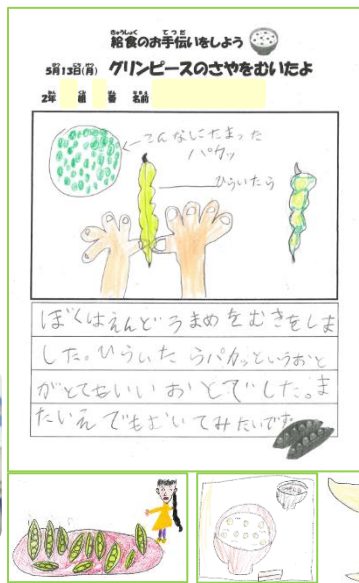 給食のお手伝いをしよう
5月13日(月) グリンピースのさやをむいたよ
2年 組 番 名前
こんなにたまった
パカッ
ひらいたら
ぼくはえんどうまめをむきをしま
した。ひらいたらパカッというおと
がとてもいいおとでした。ま
たいえでもむいてみたいです